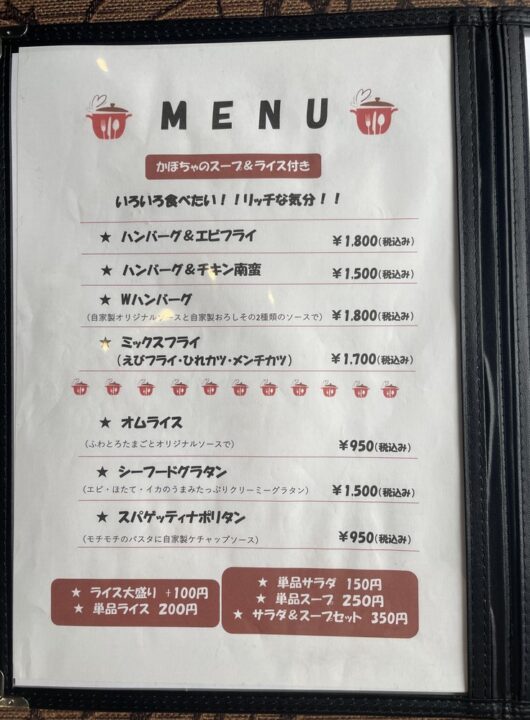 MENU
かぼちゃのスープ＆ライス付き
いろいろ食べたい！！リッチな気分！！
★ ハンバーグ＆エビフライ ￥1,800(税込み)
★ ハンバーグ＆チキン南蛮 ￥1,500(税込み)
★ Wハンバーグ
(自家製オリジナルソースと自家製おろしその2種類のソースで) ￥1,800(税込み)
★ ミックスフライ
(えびフライ・ひれカツ・メンチカツ) ￥1,700(税込み)
★ オムライス
(ふわとろたまごとオリジナルソースで) ￥950(税込み)
★ シーフードグラタン
(エビ・ほたて・イカのうまみたっぷりクリーミーグラタン) ￥1,500(税込み)
★ スパゲッティナポリタン
(モチモチのパスタに自家製ケチャップソース) ￥950(税込み)
★ ライス大盛り +100円
★ 単品ライス 200円
★ 単品サラダ 150円
★ 単品スープ 250円
★ サラダ＆スープセット 350円